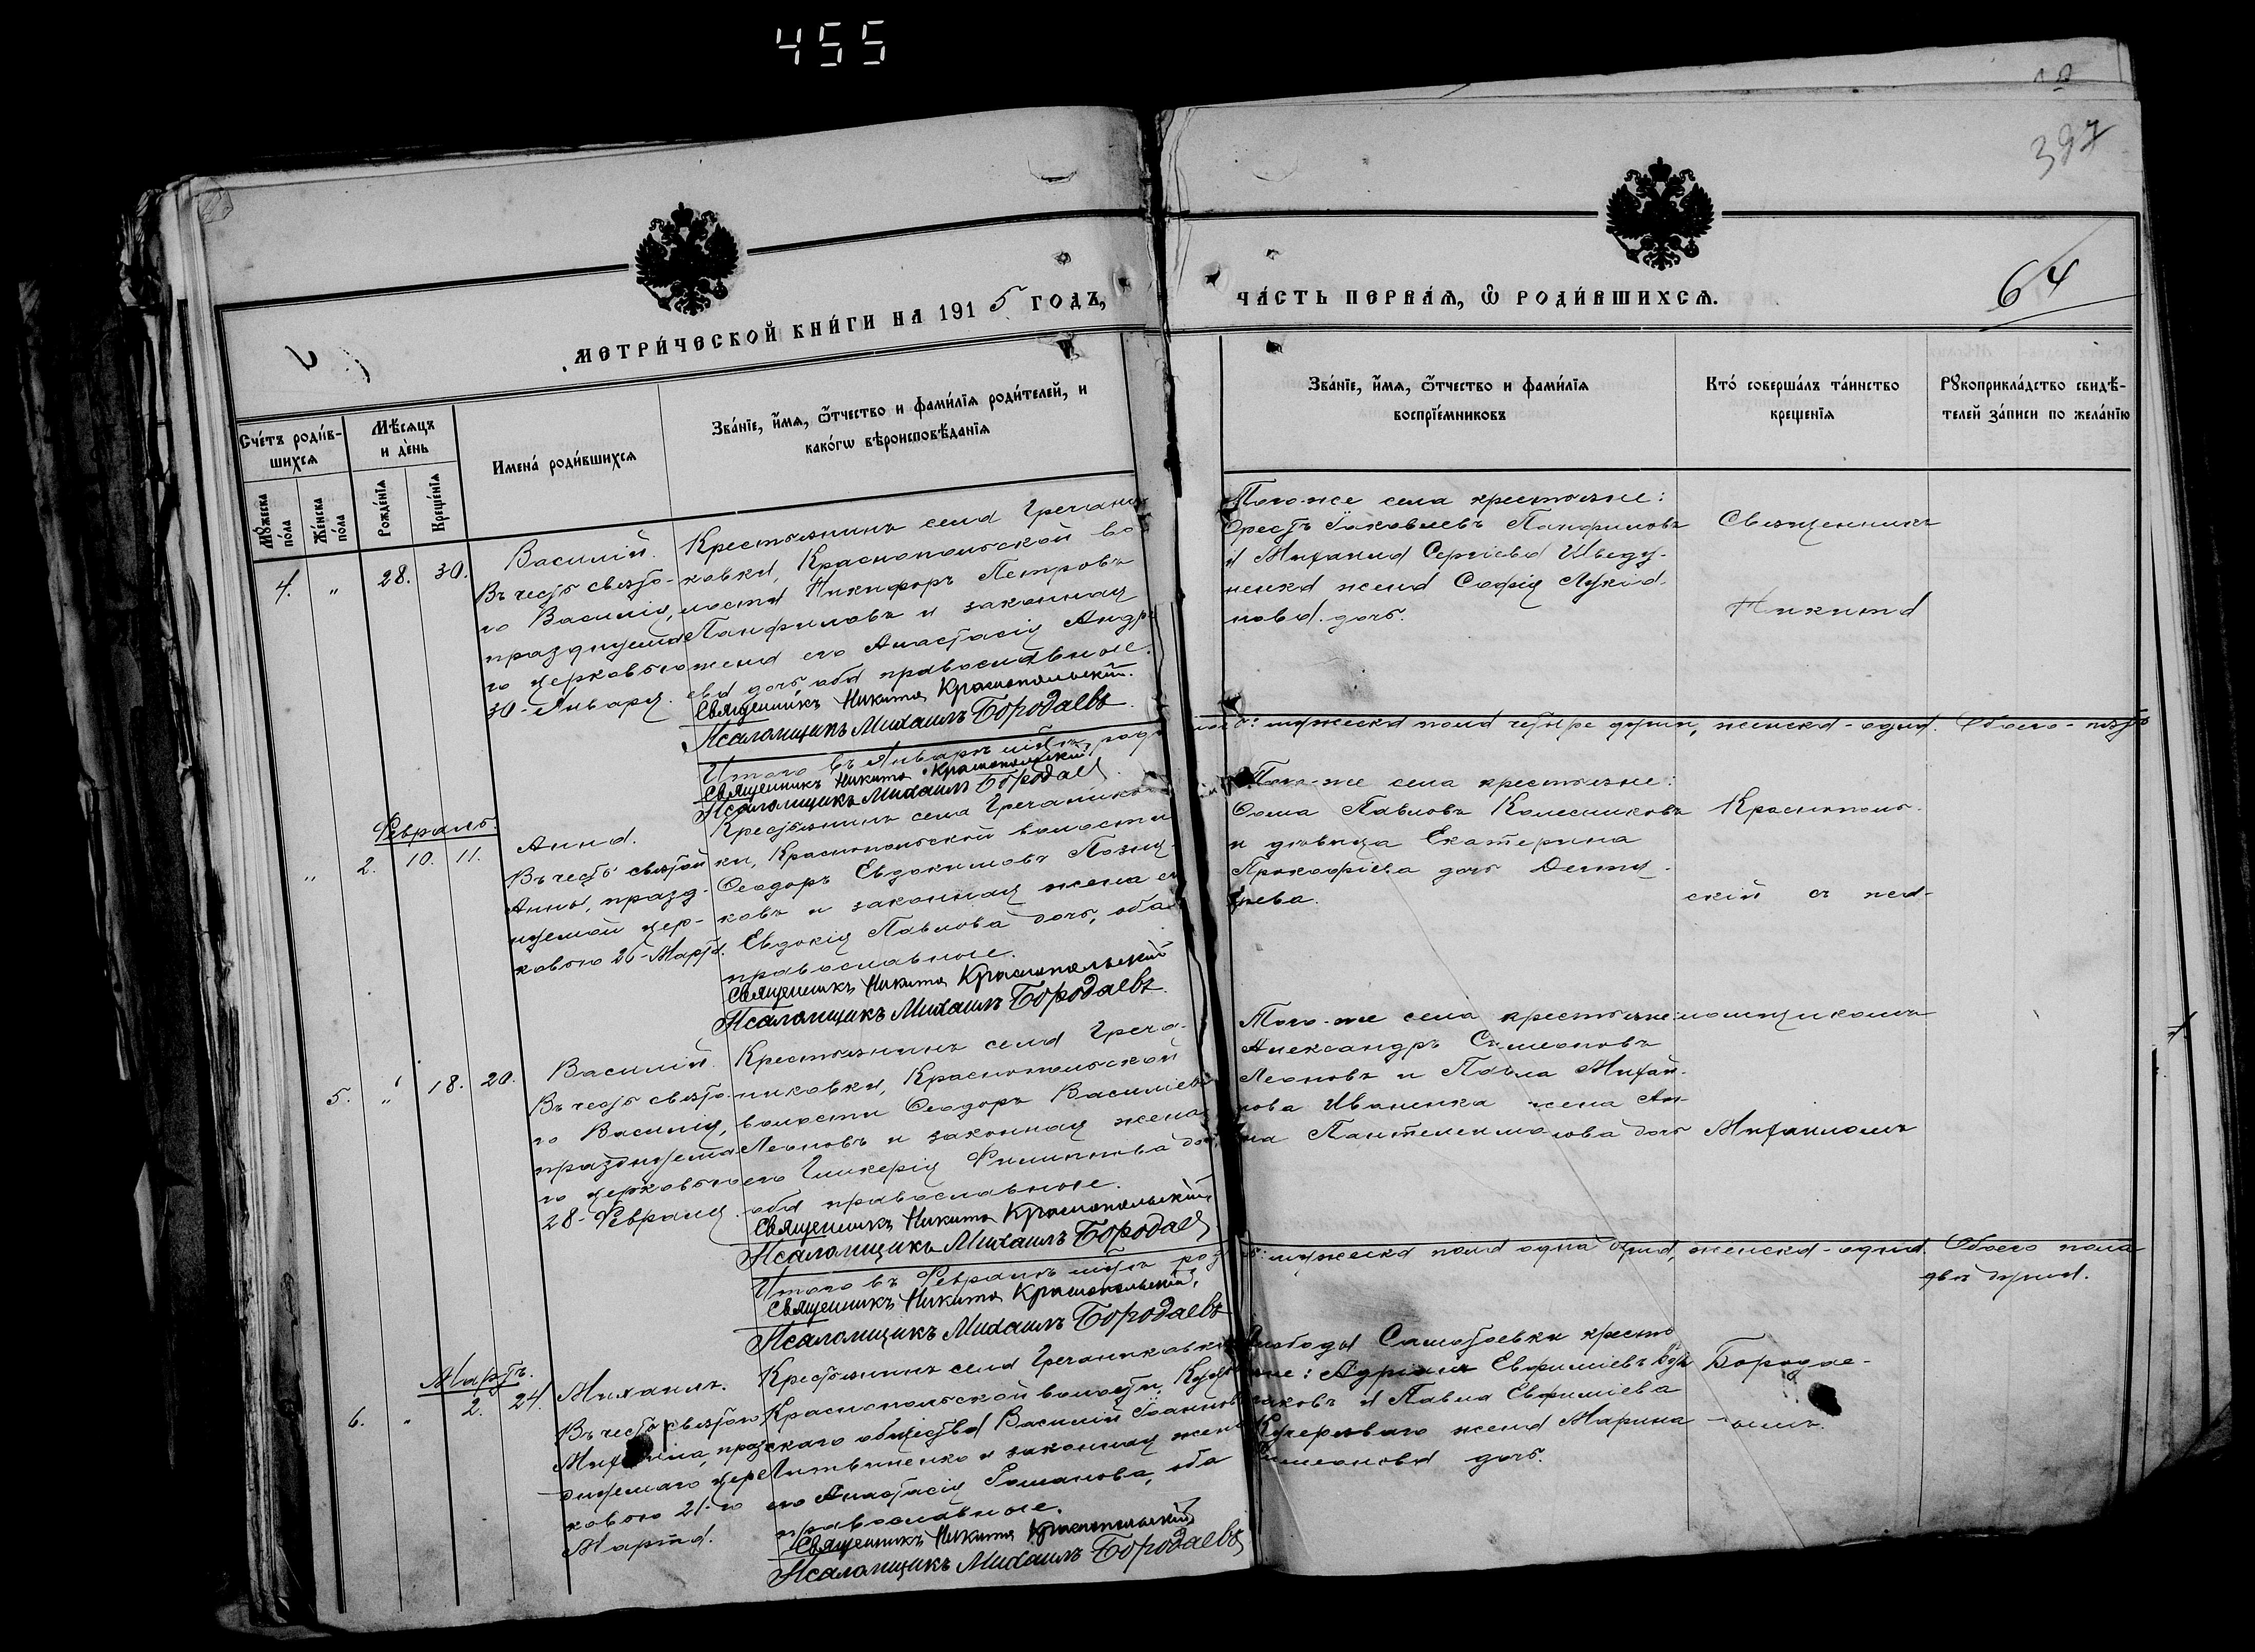 455
397
МЕТРИ́ЧЕСКОЙ КНИ́ГИ НА 1915 ГОДЪ,
ЧА́СТЬ ПЕРВА́Я, Ѽ РОДИ́ВШИХСЯ.
64
Сче́тъ роди́в-
шихся
Мѣ́сяцъ
и де́нь
Имена́ роди́вшихся
Зва́нїе, и҆́мя, ѻ҆́тчество и фами́лїя роди́телей, и
како́гѡ вѣроисповѣ́данїя
Мꙋ́жеска
по́ла
Же́нска
по́ла
Рожде́нїя
Креще́нїя
Зва́нїе, и҆́мя, ѻ҆́тчество и фами́лїя
воспрїе́мниковъ
Кто́ соверша́лъ та́инство
креще́нїя
Рꙋкоприкла́дство свидѣ́-
телей за́писи по жела́нїю
4. „ 28. 30.
Василій.
Въ честь свято-
го Василія,
празднуема-
го церковью
30-Января.
Крестьянинъ села Гречани-
ковки, Краснопольской во-
лости Никифоръ Петровъ
Панфиловъ и законная
жена его Анастасія Андре-
ева дочь, оба православные.
Священникъ Никита Краснопольскій.
Псаломщикъ Михаилъ Бородаевъ.
Того-же села крестьяне:
Орестъ Іаковлевъ Панфиловъ
и Михаила Сергіева Шведу-
ненка жена Софія Лукіа-
нова дочь.
Священникъ
Никита
Итого въ Январѣ мѣсяцѣ
мужеска пола четыре души, женска-одна. Обоего-пять
Священникъ Никита Краснопольскій
Псаломщикъ Михаилъ Бородаевъ
Февраль.
„ 2. 10. 11.
Анна.
Въ честь святой
Анны, празд-
нуемой цер-
ковью 26-Марта.
Крестьянинъ села Гречанико-
ки, Краснопольской волости
Ѳеодоръ Евдокимовъ Позня-
ковъ и законная жена его
Евдокія Павлова дочь, оба
православные.
Священникъ Никита Краснопольскій
Псаломщикъ Михаилъ Бородаевъ.
Того-же села крестьяне:
Ѳома Павловъ Колесниковъ
и дѣвица Екатерина
Прокофіева дочь Демид-
Краснополь-
скій съ пса-
5. „ 18. 20.
Василій.
Въ честь свято-
го Василія,
празднуема-
го церковью
28-Февраля.
Крестьянинъ села Греча-
никовки, Краснопольской
волости Ѳеодоръ Василіевъ
Леоновъ и законная жена
его Гликерія Филиппова дочь,
оба православные.
Священникъ Никита Краснопольскій
Псаломщикъ Михаилъ Бородаевъ
Того-же села крестьяне:
Александръ Симеоновъ
Леоновъ и Павла Михай-
лова Иваненка жена Ан-
на Пантелеимонова дочь
ломщикомъ
Михаиломъ
Итого въ Февралѣ мѣсяцѣ
мужеска пола одна душа, женска-одна. Обоего пола
двѣ души.
Священникъ Никита Краснопольскій,
Псаломщикъ Михаилъ Бородаевъ
Мартъ.
6. „ 2. 24.
Михаилъ.
Въ честь святого
Михаила, праз-
днуемаго цер-
ковью 21-го
Марта.
Крестьянинъ села Гречаниковки
Краснопольской волости,
скаго общества Василій Іоанновъ
Литвиненко и законная жена
его Анастасія Романова, оба
православные.
Священникъ Никита Краснопольскій
Псаломщикъ Михаилъ Бородаевъ
Слободы Самотоевки крестья-
не: Адріанъ Евфиміевъ
и Павла Евфиміева
Кучеряваго жена Марина
Симеонова дочь.
Бородае-
вымъ.